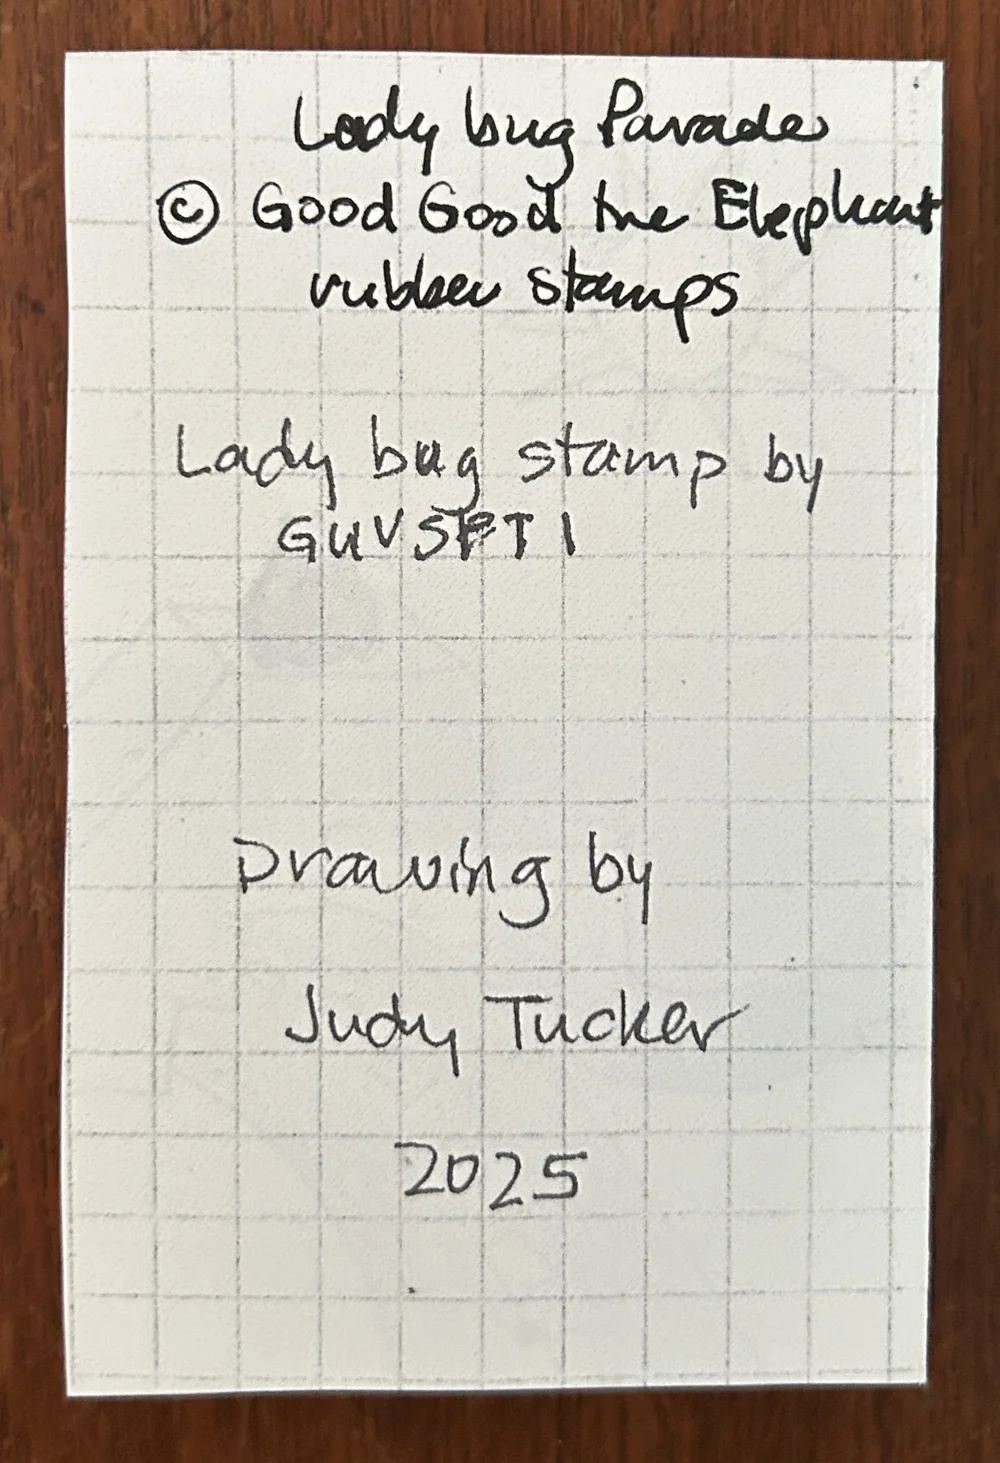 Lady bug Parade
© Good Good the Elephant
rubber stamps
Lady bug stamp by
Drawing by
Judy Tucker
2025